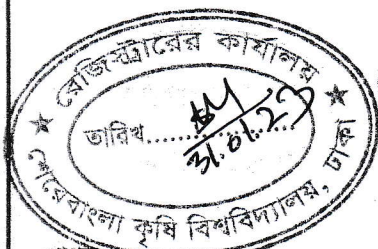 রেজিস্ট্রারের কার্যালয়
তারিখ..................
31.01.23
শেরেবাংলা কৃষি বিশ্ববিদ্যালয়, ঢাকা